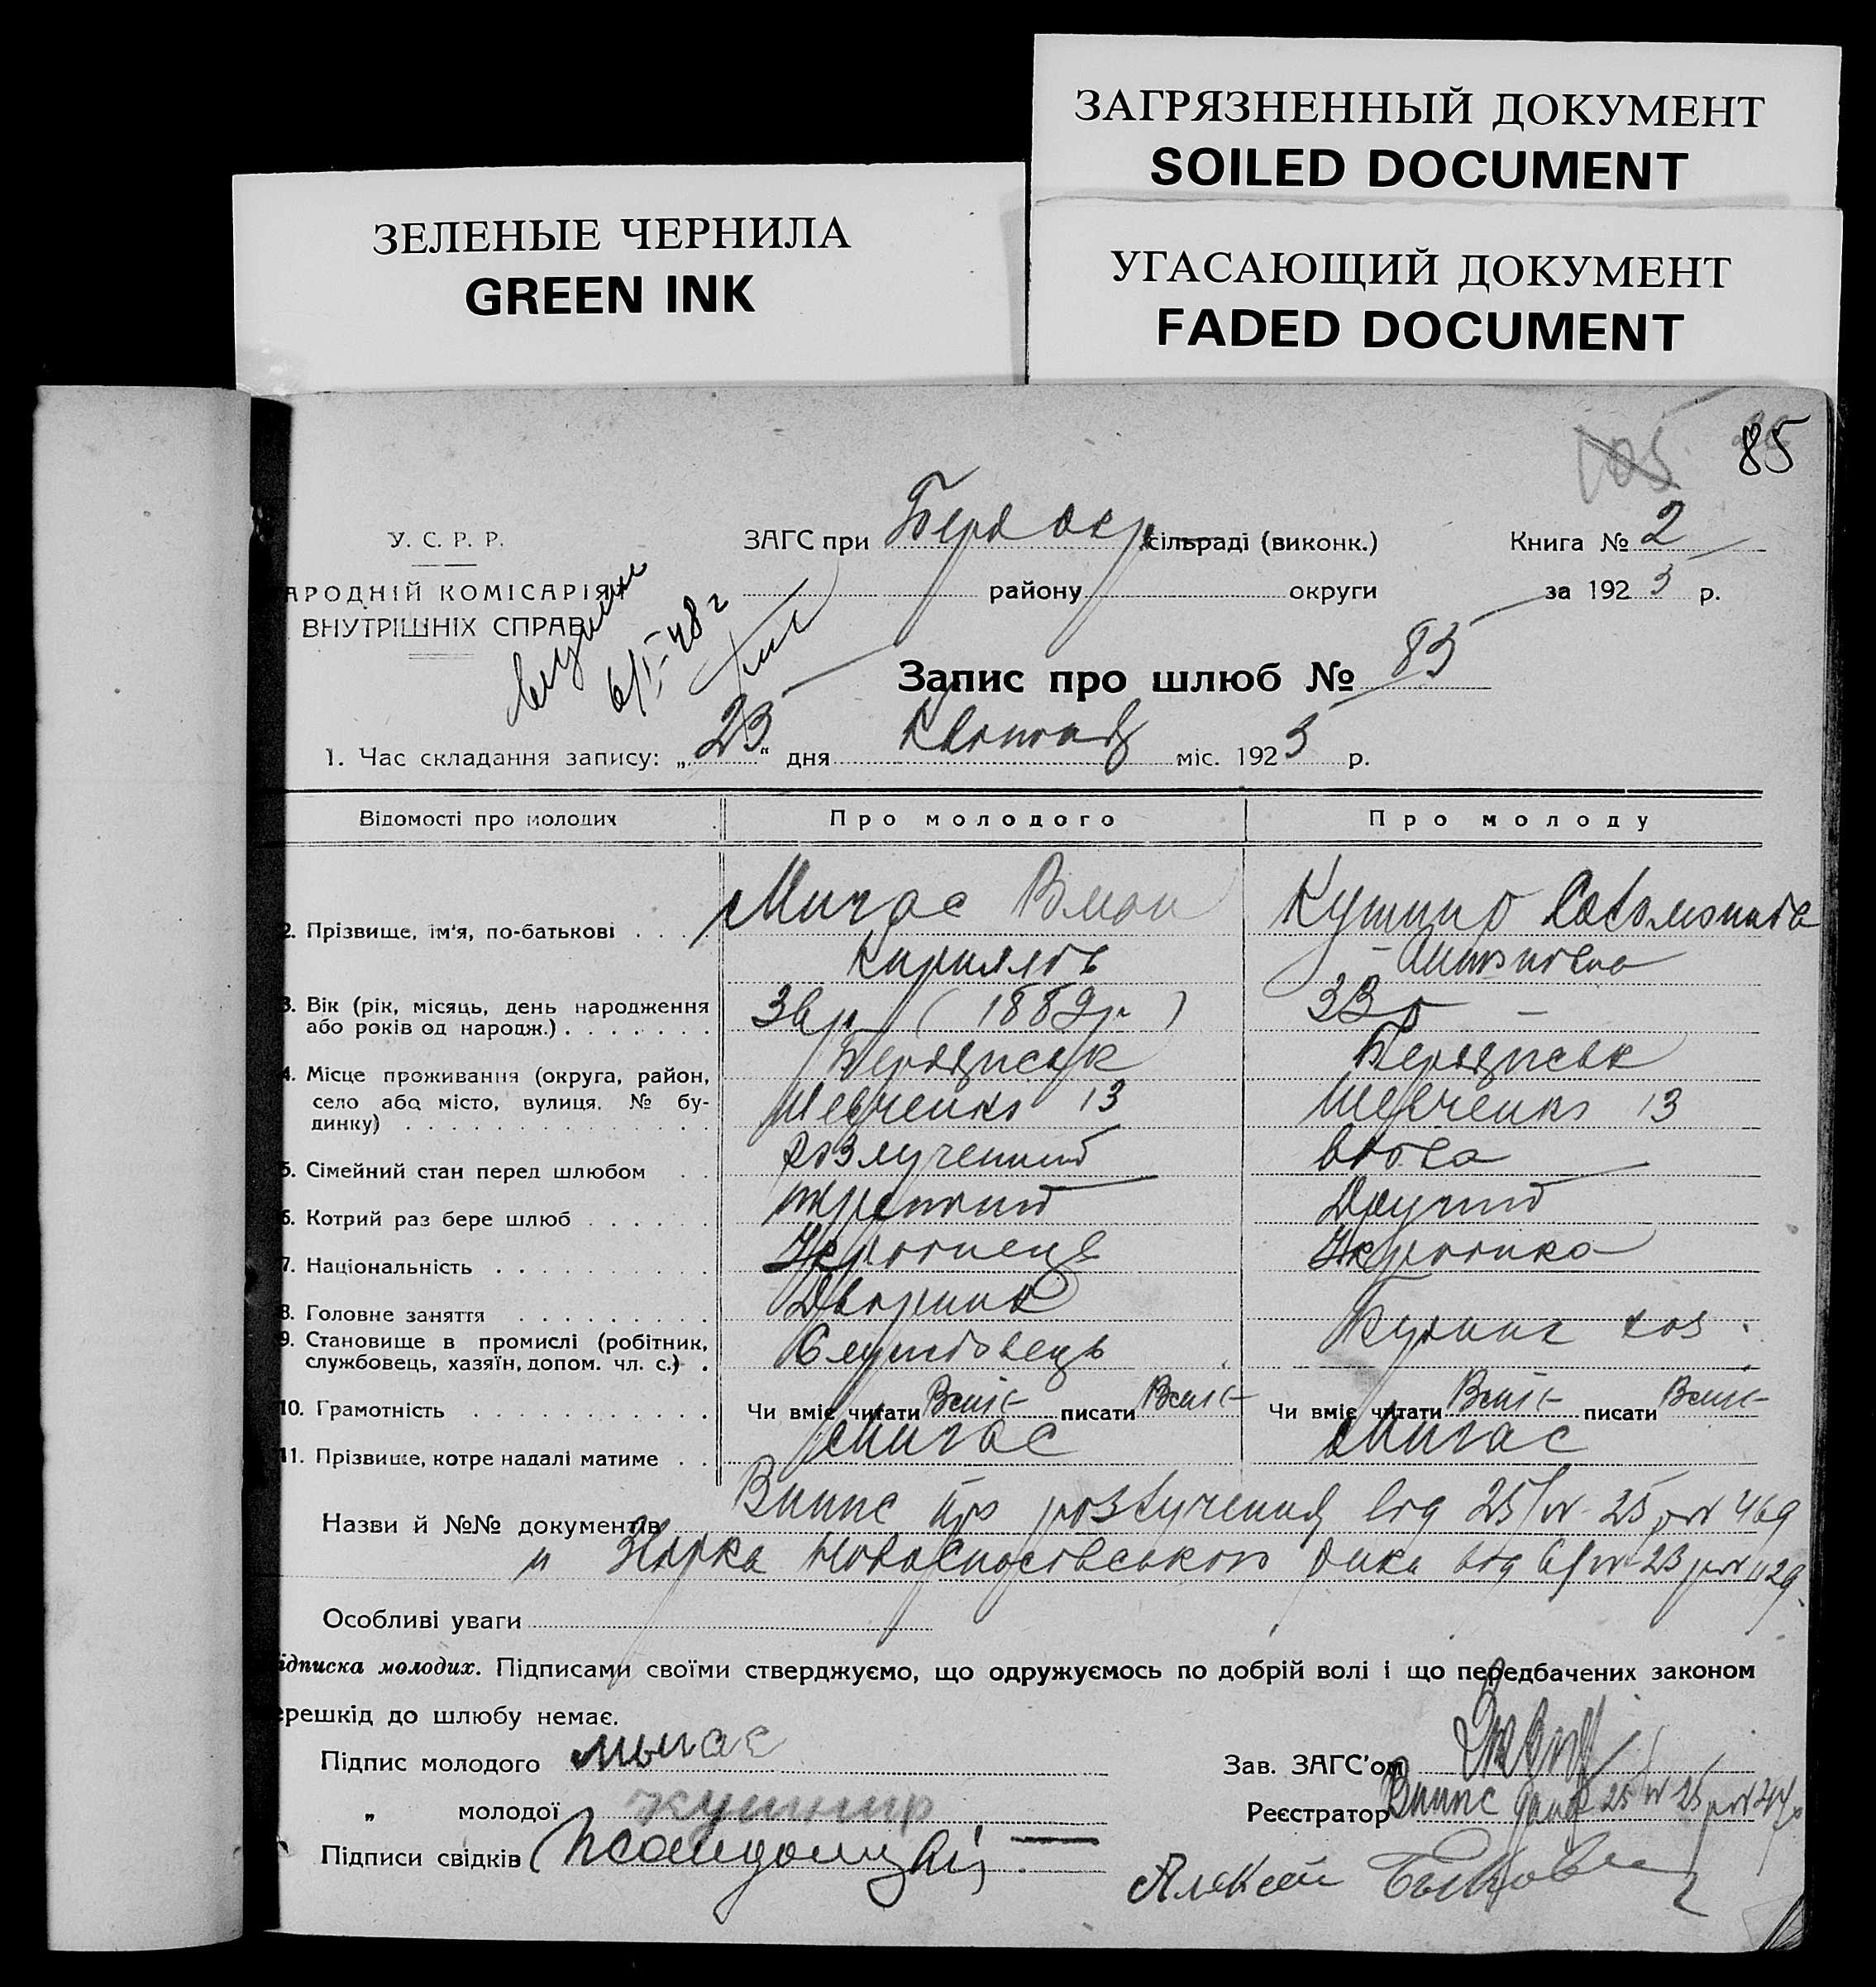 ЗАГРЯЗНЕННЫЙ ДОКУМЕНТ
SOILED DOCUMENT
ЗЕЛЕНЫЕ ЧЕРНИЛА
GREEN INK
УГАСАЮЩИЙ ДОКУМЕНТ
FADED DOCUMENT
105 85
У. С. Р. Р.
ЗАГС при Берд окр сільраді (виконк.) Книга № 2
АРОДНІЙ КОМІСАРІЯТ
району округи за 192 5 р.
ВНУТРІШНІХ СПРАВ
6/I-48 г
Запис про шлюб № 85
1. Час складання запису: „25“ дня Квітня міс. 192 5 р.
Відомості про молодих Про молодого Про молоду
2. Прізвище, ім'я, по-батькові Мигас
Кирилов
Кушнір
3. Вік (рік, місяць, день народження або років од народж.) 36 р. (1889 р.) 33 р
4. Місце проживання (округа, район, село або місто, вулиця. № будинку)
Бердянськ Бердянськ
Шевченко 13 Шевченко 13
5. Сімейний стан перед шлюбом розлучений вдова
6. Котрий раз бере шлюб третій Другий
7. Національність Українець Українка
8. Головне заняття Дворник
9. Становище в промислі (робітник, службовець, хазяїн, допом. чл. с.) Службовець
10. Грамотність Чи вміє читати Вміє писати Вміє Чи вміє читати Вміє писати Вміє
11. Прізвище, котре надалі матиме Мигас Мигас
Назви й №№ документів Випис про розлучення від 25/IV-25 р № 469
Особливі уваги
ідписка молодих. Підписами своїми стверджуємо, що одружуємось по добрій волі і що передбачених законом
ерешкід до шлюбу немає.
Підпис молодого Мигас Зав. ЗАГС'ом
„ молодої Кушнир Реєстратор
Випис 25/IV 25 р №
Підписи свідків
Алексей